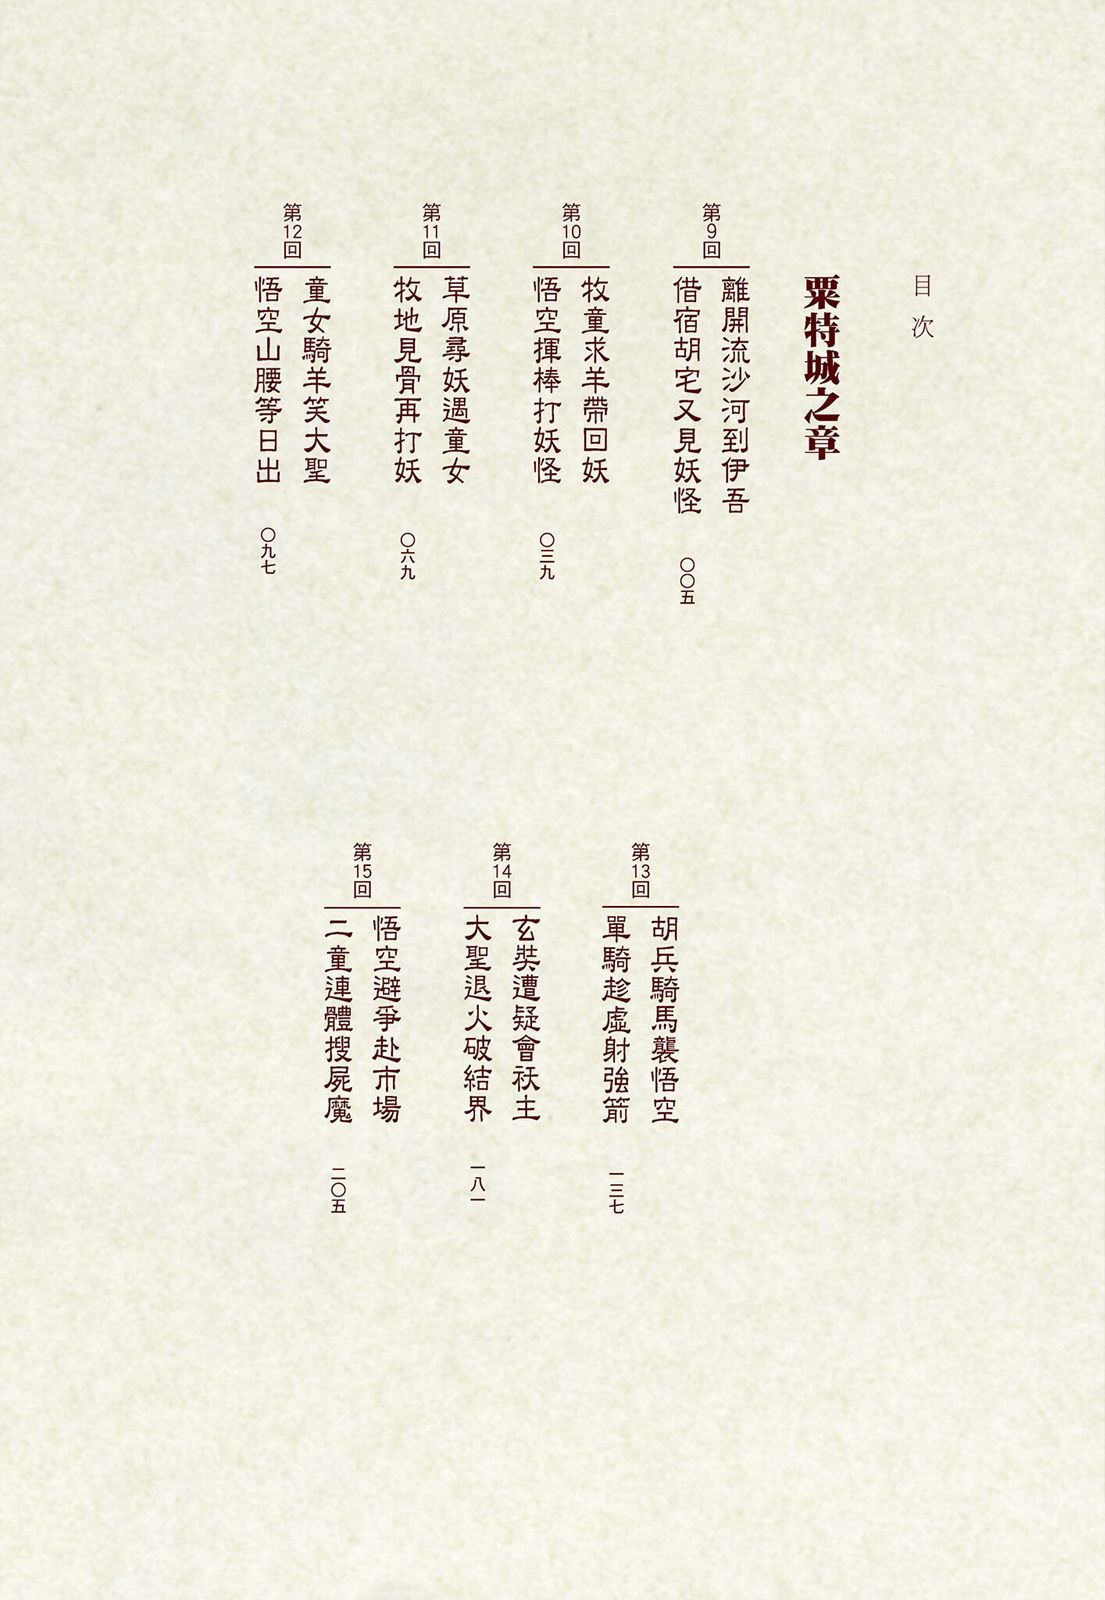 目次
粟特城之章
第9回
離開流沙河到伊吾
借宿胡宅又見妖怪
〇〇五
第10回
牧童求羊帶回妖
悟空揮棒打妖怪
〇三九
第11回
草原尋妖遇童女
牧地見骨再打妖
〇六九
第12回
童女騎羊笑大聖
悟空山腰等日出
〇九七
第13回
胡兵騎馬襲悟空
單騎趁虛射強箭
一三七
第14回
玄奘遭疑會祆主
大聖退火破結界
一八一
第15回
悟空避爭赴市場
二童連體搜屍魔
二〇五